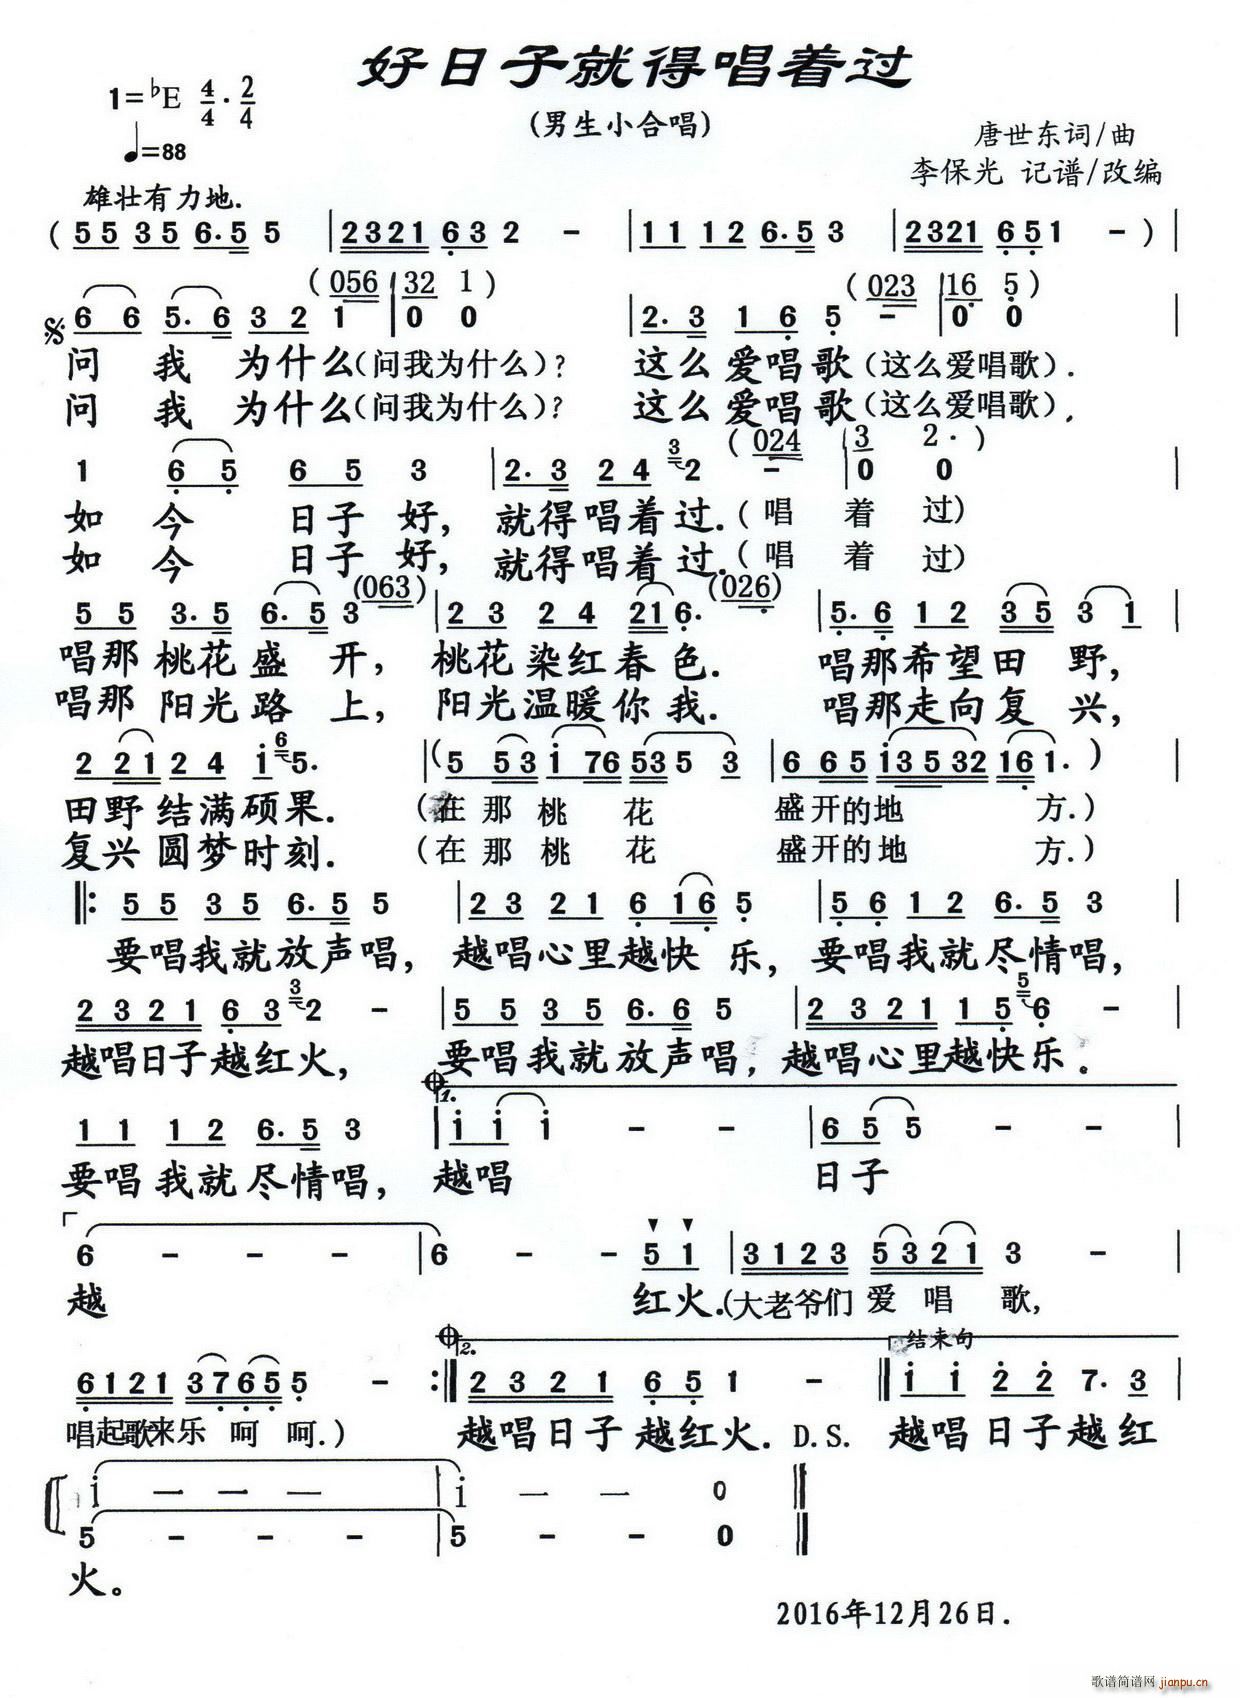 好日子就得唱着过
1=♭E 4/4 · 2/4
(男生小合唱)
♩=88
唐世东词/曲
李保光 记谱/改编
雄壮有力地.
( 55 35 6·5 5 | 2321 63 2 - | 11 12 6·5 3 | 2321 651 - ) |
(056 | 32 1 ) (023 | 16 5 )
66 5·6 32 1 | 0 0 | 2·3 16 5 - | 0 0 |
问 我 为什么(问我为什么)? 这么爱唱歌(这么爱唱歌).
问 我 为什么(问我为什么)? 这么爱唱歌(这么爱唱歌),
(024 | 3 2· )
1 65 65 3 | 2·3 24 3 2 - | 0 0 |
如 今 日子 好, 就得唱着过.( 唱 着 过)
如 今 日子 好, 就得唱着过.( 唱 着 过)
(063) (026)
55 3·5 6·5 3 | 23 24 21 6· | 5·6 12 35 3 1 |
唱那 桃花 盛 开, 桃花染红春色. 唱那希望田 野,
唱那 阳光 路 上, 阳光温暖你我. 唱那走向复 兴,
2 21 24 i 6 5· | (5 53 i 76 535 3 | 6 65 i3532 161· ) |
田野结满硕果. (在那 桃 花 盛开的地 方.)
复兴圆梦时刻. (在那 桃 花 盛开的地 方.)
‖: 55 35 6·5 5 | 23 21 6 16 5 | 56 12 6·5 3 |
要唱我就放声唱, 越唱心里越快 乐, 要唱我就尽情唱,
2321 63 3 2 - | 55 35 6·6 5 | 2321 15 5 6 - |
越唱日子越红火, 要唱我就放声唱, 越唱心里越快乐.
1.
11 12 6·5 3 | i i i - - | 65 5 - - |
要唱我就尽情唱, 越唱 日子
6 - - - | 6 - - 51 | 3123 5321 3 - |
越 红火.(大老爷们 爱 唱 歌,
2. 结束句
6121 37655 - :‖ 2321 65 1 - ‖ i i 2 2 7·3 |
唱起歌来乐 呵 呵.) 越唱日子越红火. D.S. 越唱日子越红
i - - - | i - - 0 ‖
5 - - - | 5 - - 0 ‖
火。
2016年12月26日.
歌谱简谱网 jianpu.cn